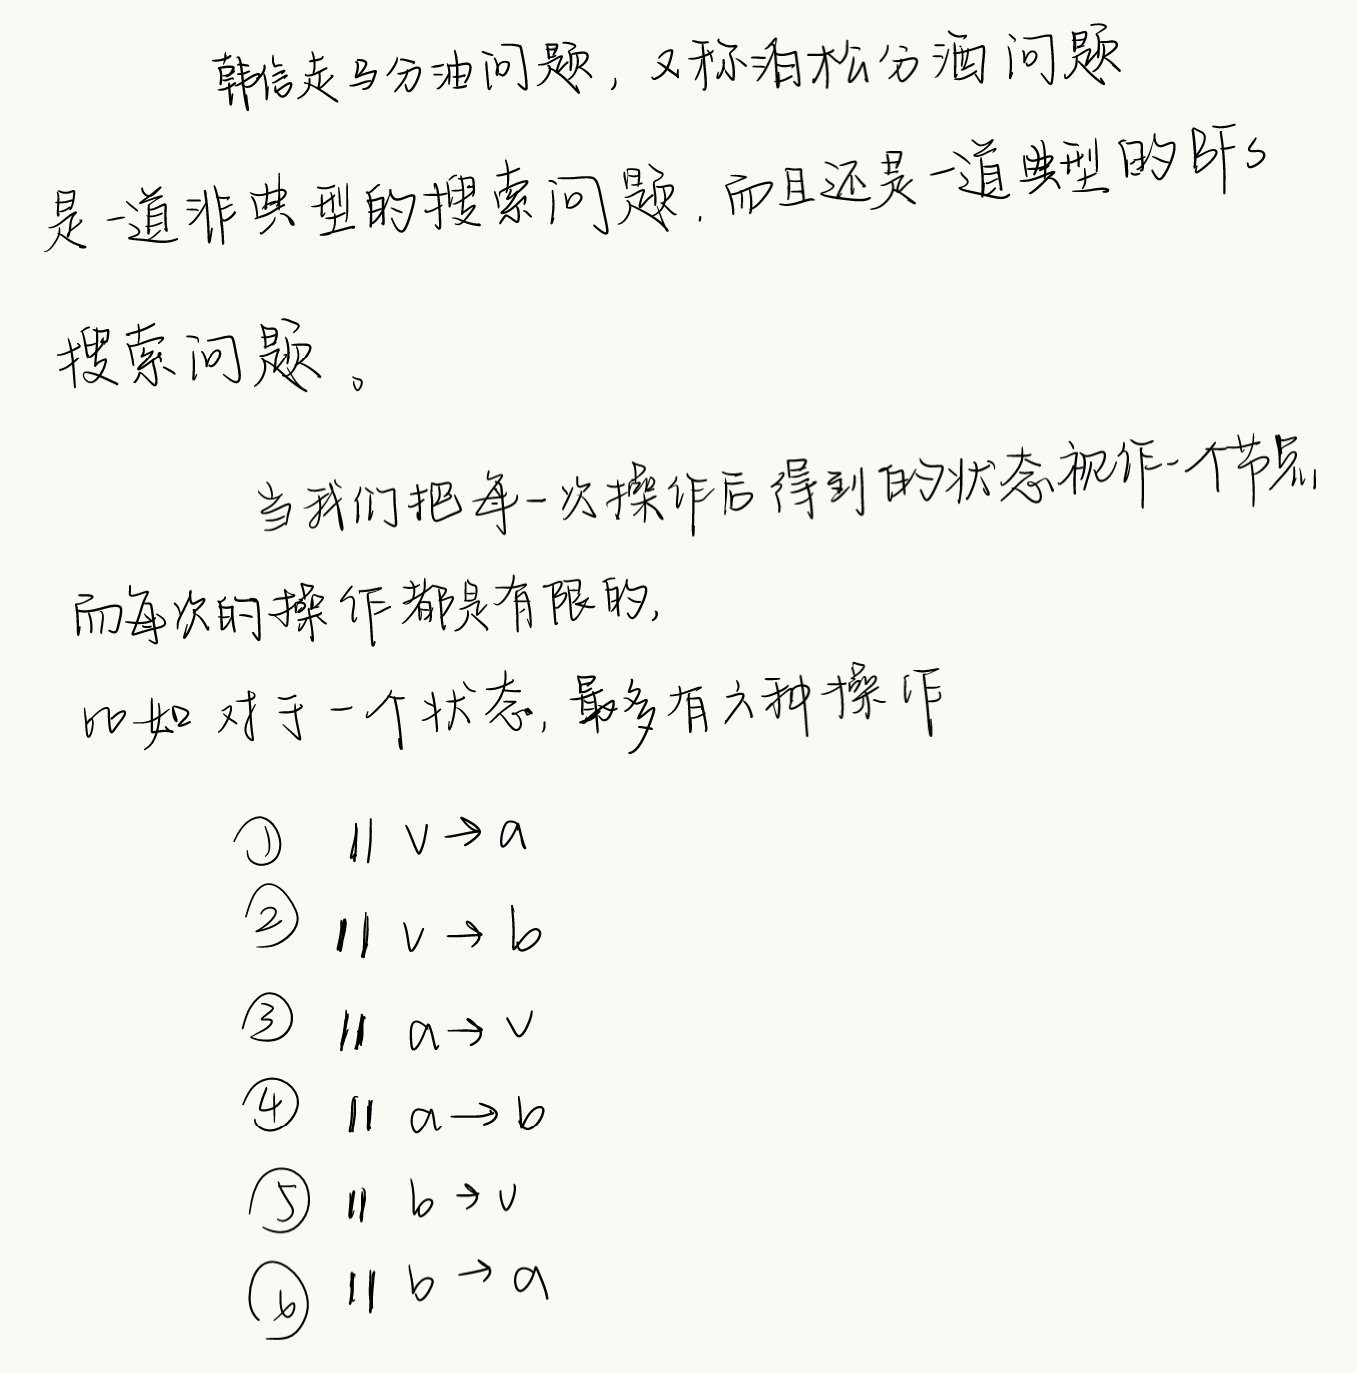 韩信走马分油问题，又称泊松分酒问题
是一道非典型的搜索问题，而且还是一道典型的BFS
搜索问题。
当我们把每一次操作后得到的状态视作一个节点，
而每次的操作都是有限的，
比如对于一个状态，最多有六种操作
① // v→a
② // v→b
③ // a→v
④ // a→b
⑤ // b→v
⑥ // b→a